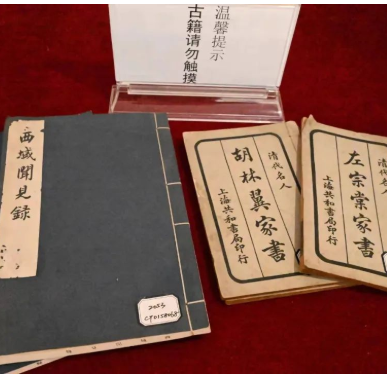 温馨提示
古籍请勿触摸
西域聞見錄
清代名人
胡林翼家書
上海共和書局印行
清代名人
左宗棠家書
上海共和書局印行